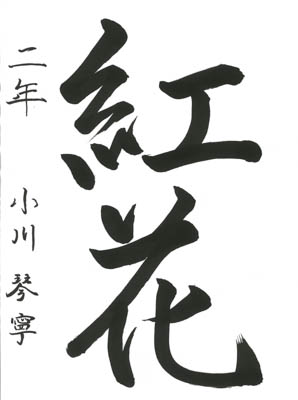 紅花
二年 小川琴寧